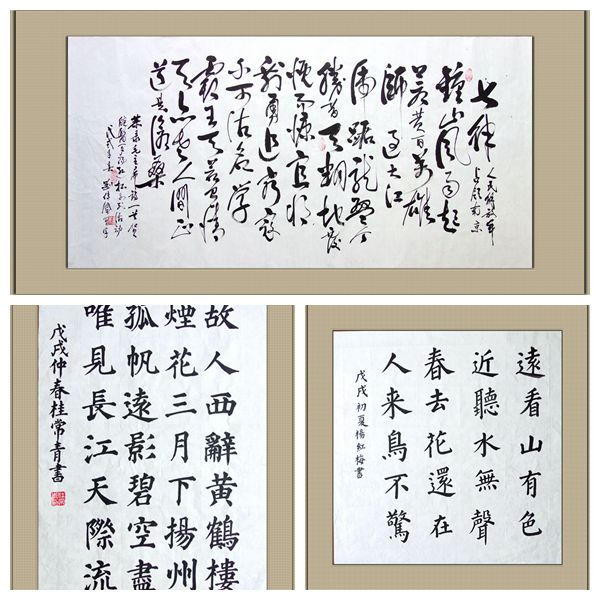 七律
人民解放军
占领南京
鍾山风雨起
苍黄百万雄
師过大江
虎踞龍盤今
勝昔天翻地覆
慨而慷宜将
剩勇追穷寇
不可沽名学
霸王天若有情
天亦老人間正
道是滄桑
故人西辭黄鶴樓
煙花三月下揚州
孤帆遠影碧空盡
唯見長江天際流
戊戌仲春桂常青書
遠看山有色
近聽水無聲
春去花還在
人来鳥不驚
戊戌初夏楊紅梅書